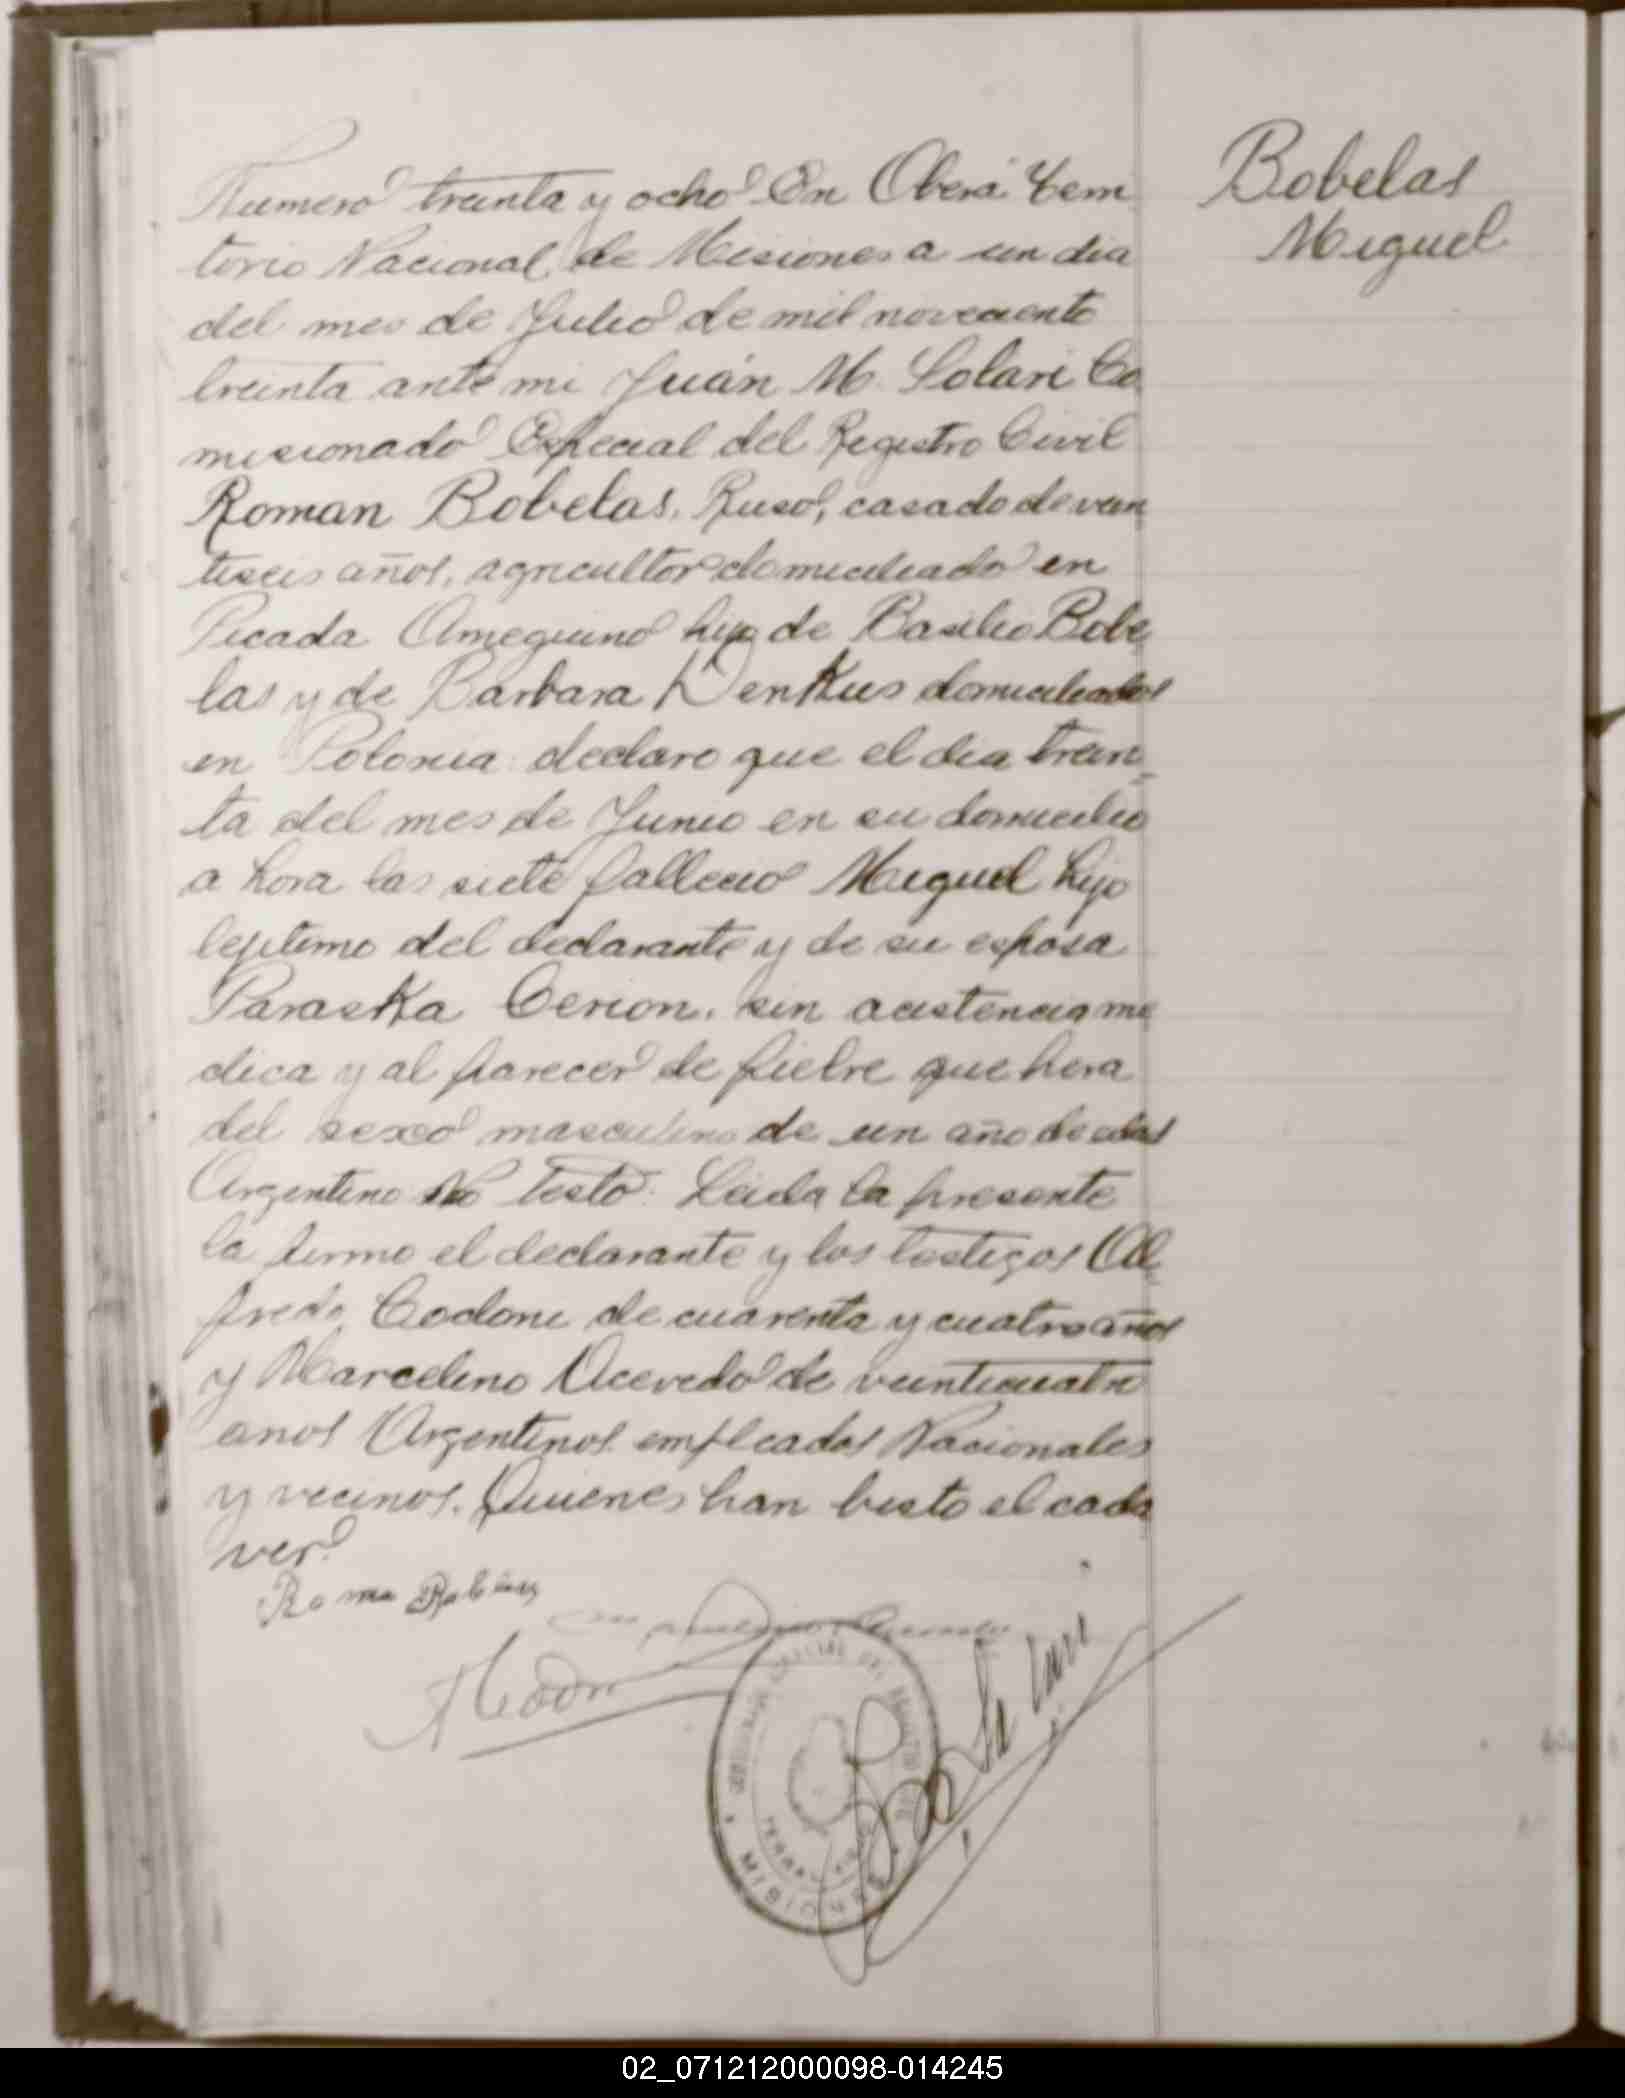 Bobelas
Miguel
Numero treinta y ocho En Oberá Terri
torio Nacional de Misiones a un dia
del mes de Julio de mil noveciento
treinta ante mi Juán M. Solari Co
misionado Especial del Registro Civil
Roman Bobelas, Ruso, casado de vein
tiseis años, agricultor domiciliado en
Picada Ameguino hijo de Basilio Bobe
las y de Barbara Denkus domiciliados
en Polonia declaro que el dia trein
ta del mes de Junio en su domicilio
a hora las siete fallecio Miguel hijo
lejitimo del declarante y de su esposa
Paraska Cerion, sin acistencia me
dica y al parecer de fiebre que hera
del sexo masculino de un año de edad
Argentino No testo. Leida la presente
la firmo el declarante y los testigos Al
fredo Codoni de cuarenta y cuatro años
y Marcelino Acevedo de veinticuatro
anos Argentinos empleados Nacionales
y vecinos. Quienes han bisto el cada
ver.
MISIONES
02_071212000098-014245